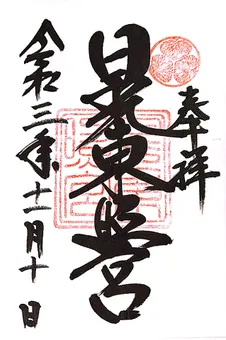 奉拝
日光東照宮
令和三年十一月十日